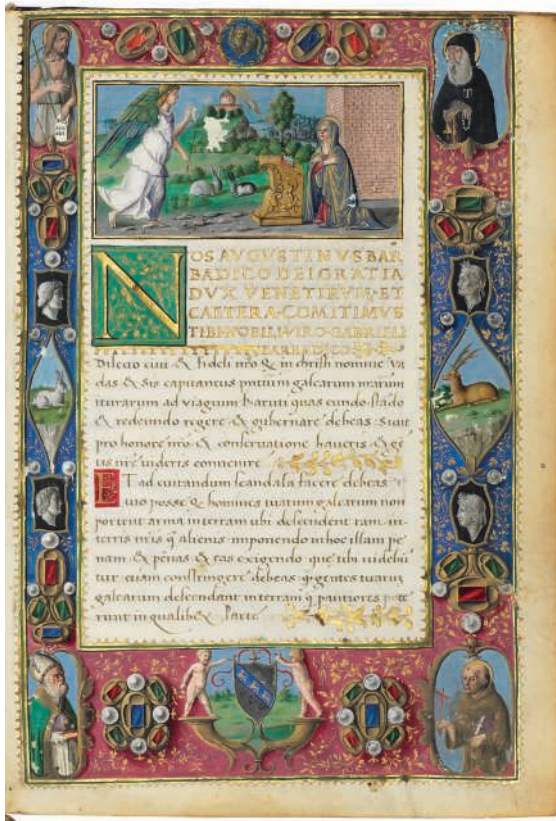 NOS AVGVSTINVS BAR
BADICO DEI GRATIA
DVX VENETIRVM ET
CAETERA COMITIMVS
TIBI NOBILI VIRO GABRIELI
BARBADICO
Dilecto ciui & Fideli nr̃o Q in christi nomine va
das & Sis capitaneus galearum nr̃arum
iturarum ad viagium Baruti quas eundo stãdo
& redeundo regere & gubernare debeas Sicut
pro honore nr̃o & conseruatione haueris & gẽ
tis nr̃e videris conuenire
ET ad euitandum scandala facere debeas
tuo posse Q homines tuarum galearum non
portent arma in terram ubi descendent tam in
terris nr̃is q̃ alienis imponendo in hoc illam pe
nam & pẽnas & eas exigendo que tibi uidebi
tur etiam constringere debeas q gentes tuarum
galearum descendant in terram q pautiores pote
runt in qualibet Parte